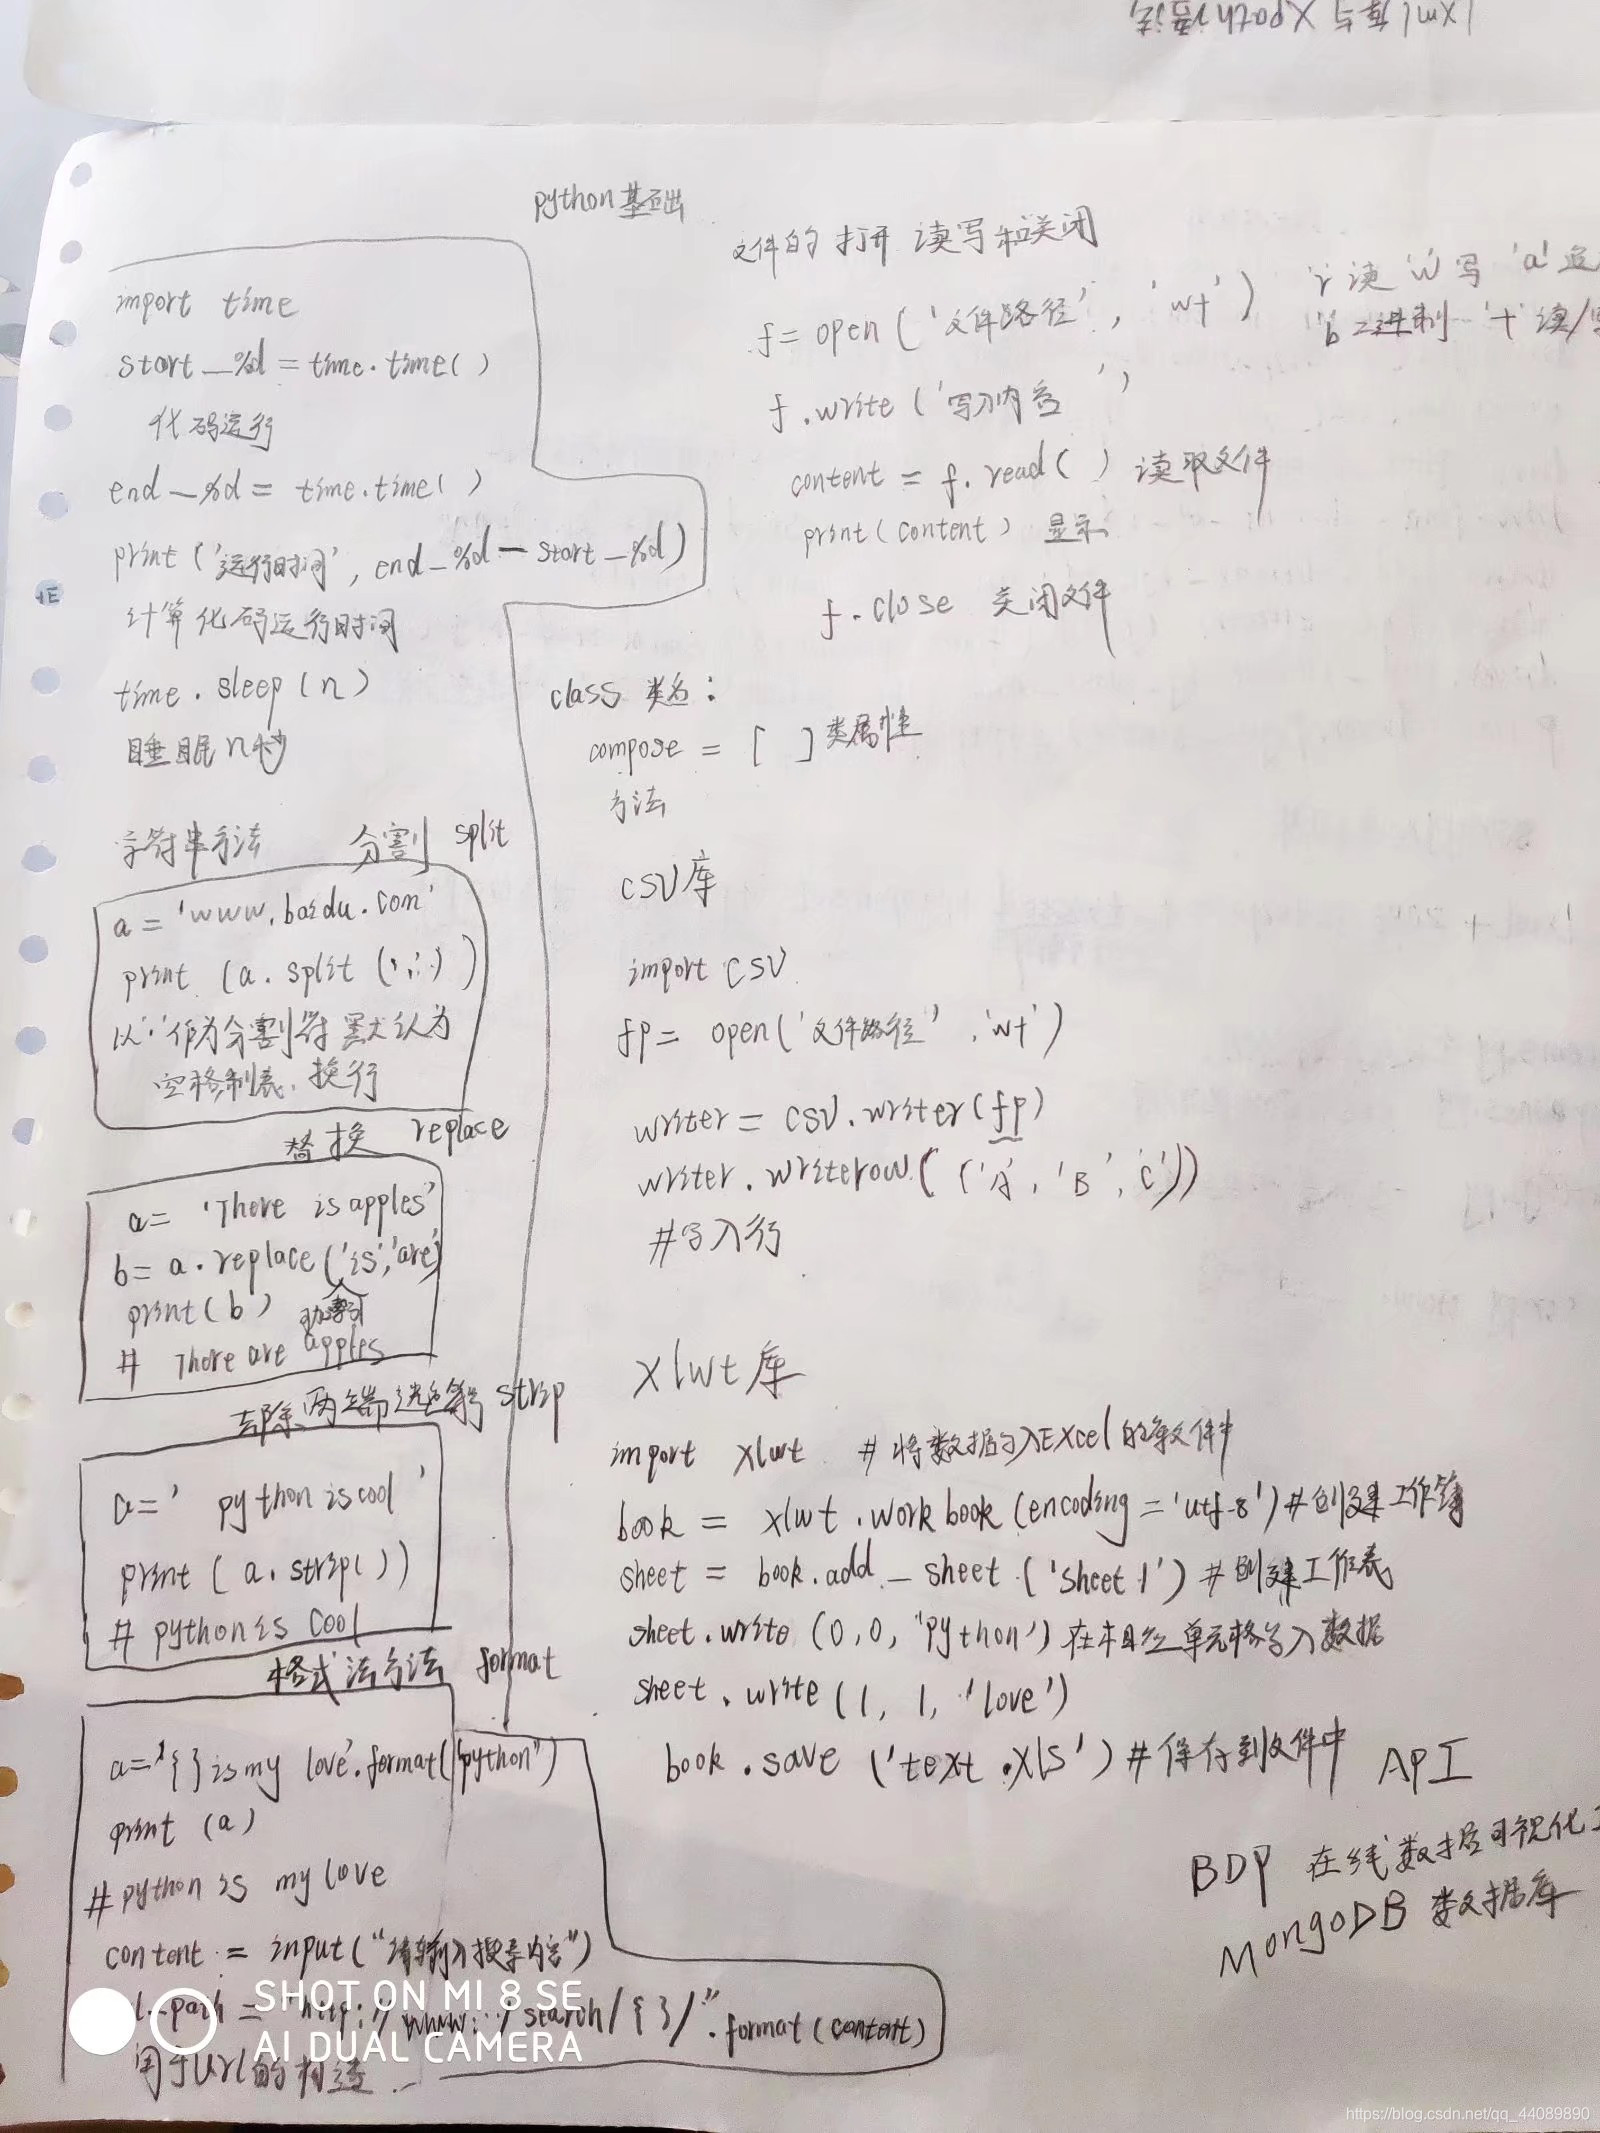 lxml库与Xpath语法
python基础
import time
start_%d = time.time()
代码运行
end_%d = time.time()
print('运行时间', end_%d - start_%d)
计算代码运行时间
time.sleep(n)
睡眠n秒
字符串方法 分割 split
a = 'www.baidu.com'
print (a.split('.'))
以'.'作为分割符 默认为
空格,制表、换行
替换 replace
a = 'There is apples'
b = a.replace('is','are')
print(b)
# There are apples
去除两端 strip
a=' python is cool '
print (a.strip())
# python is cool
格式法方法 format
a='{} is my love'.format("python")
print (a)
# python is my love
content = input("请输入搜索内容")
path = "http://www.../search/{}/".format(content)
用于url的构造
文件的打开 读写和关闭
f = open('文件路径', 'wt') 'r'读 'w'写 'a'追
'b'二进制 '+'读/写
f.write('写入内容')
content = f.read() 读取文件
print(content) 显示
f.close 关闭文件
class 类名:
compose = [ ] 类属性
方法
CSV库
import csv
fp = open('文件路径','wt')
writer = csv.writer(fp)
writer.writerow(('A','B','C'))
#写入行
xlwt库
import xlwt #将数据写入Excel的库文件中
book = xlwt.workbook(encoding='utf-8') #创建工作簿
sheet = book.add_sheet('sheet1') #创建工作表
sheet.write(0,0,'python') 在相应单元格写入数据
sheet.write(1,1,'love')
book.save('text.xls') #保存到文件中
API
BDP 在线数据可视化工
MongoDB 数据库
SHOT ON MI 8 SE
AI DUAL CAMERA
https://blog.csdn.net/qq_44089890